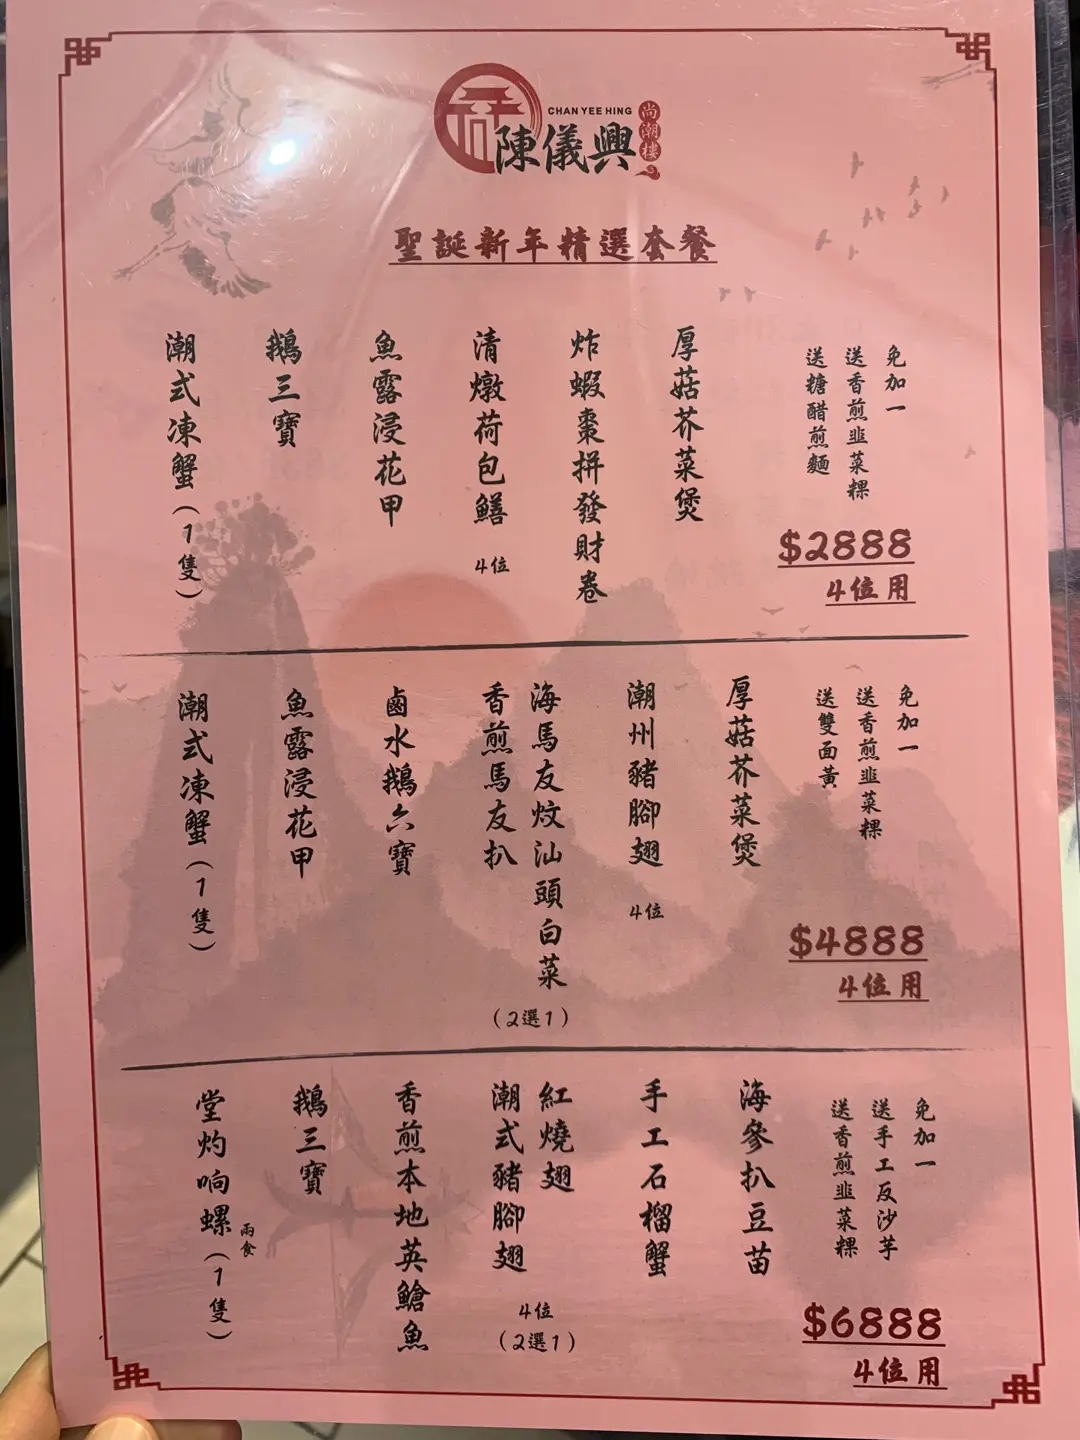 CHAN YEE HING
陳儀興
尚潮樓
聖誕新年精選套餐
潮式凍蟹(1隻)
鵝三寶
魚露浸花甲
清燉荷包鱔 4位
炸蝦棗拼發財卷
厚菇芥菜煲
送糖醋煎麵
送香煎韭菜粿
免加一
$2888
4位用
潮式凍蟹(1隻)
魚露浸花甲
鹵水鵝六寶
香煎馬友扒
海馬友炆汕頭白菜
(2選1)
潮州豬腳翅 4位
厚菇芥菜煲
送雙面黃
送香煎韭菜粿
免加一
$4888
4位用
堂灼响螺(1隻)
兩食
鵝三寶
香煎本地英鎗魚
潮式豬腳翅
紅燒翅
4位
(2選1)
手工石榴蟹
海參扒豆苗
送香煎韭菜粿
送手工反沙芋
免加一
$6888
4位用